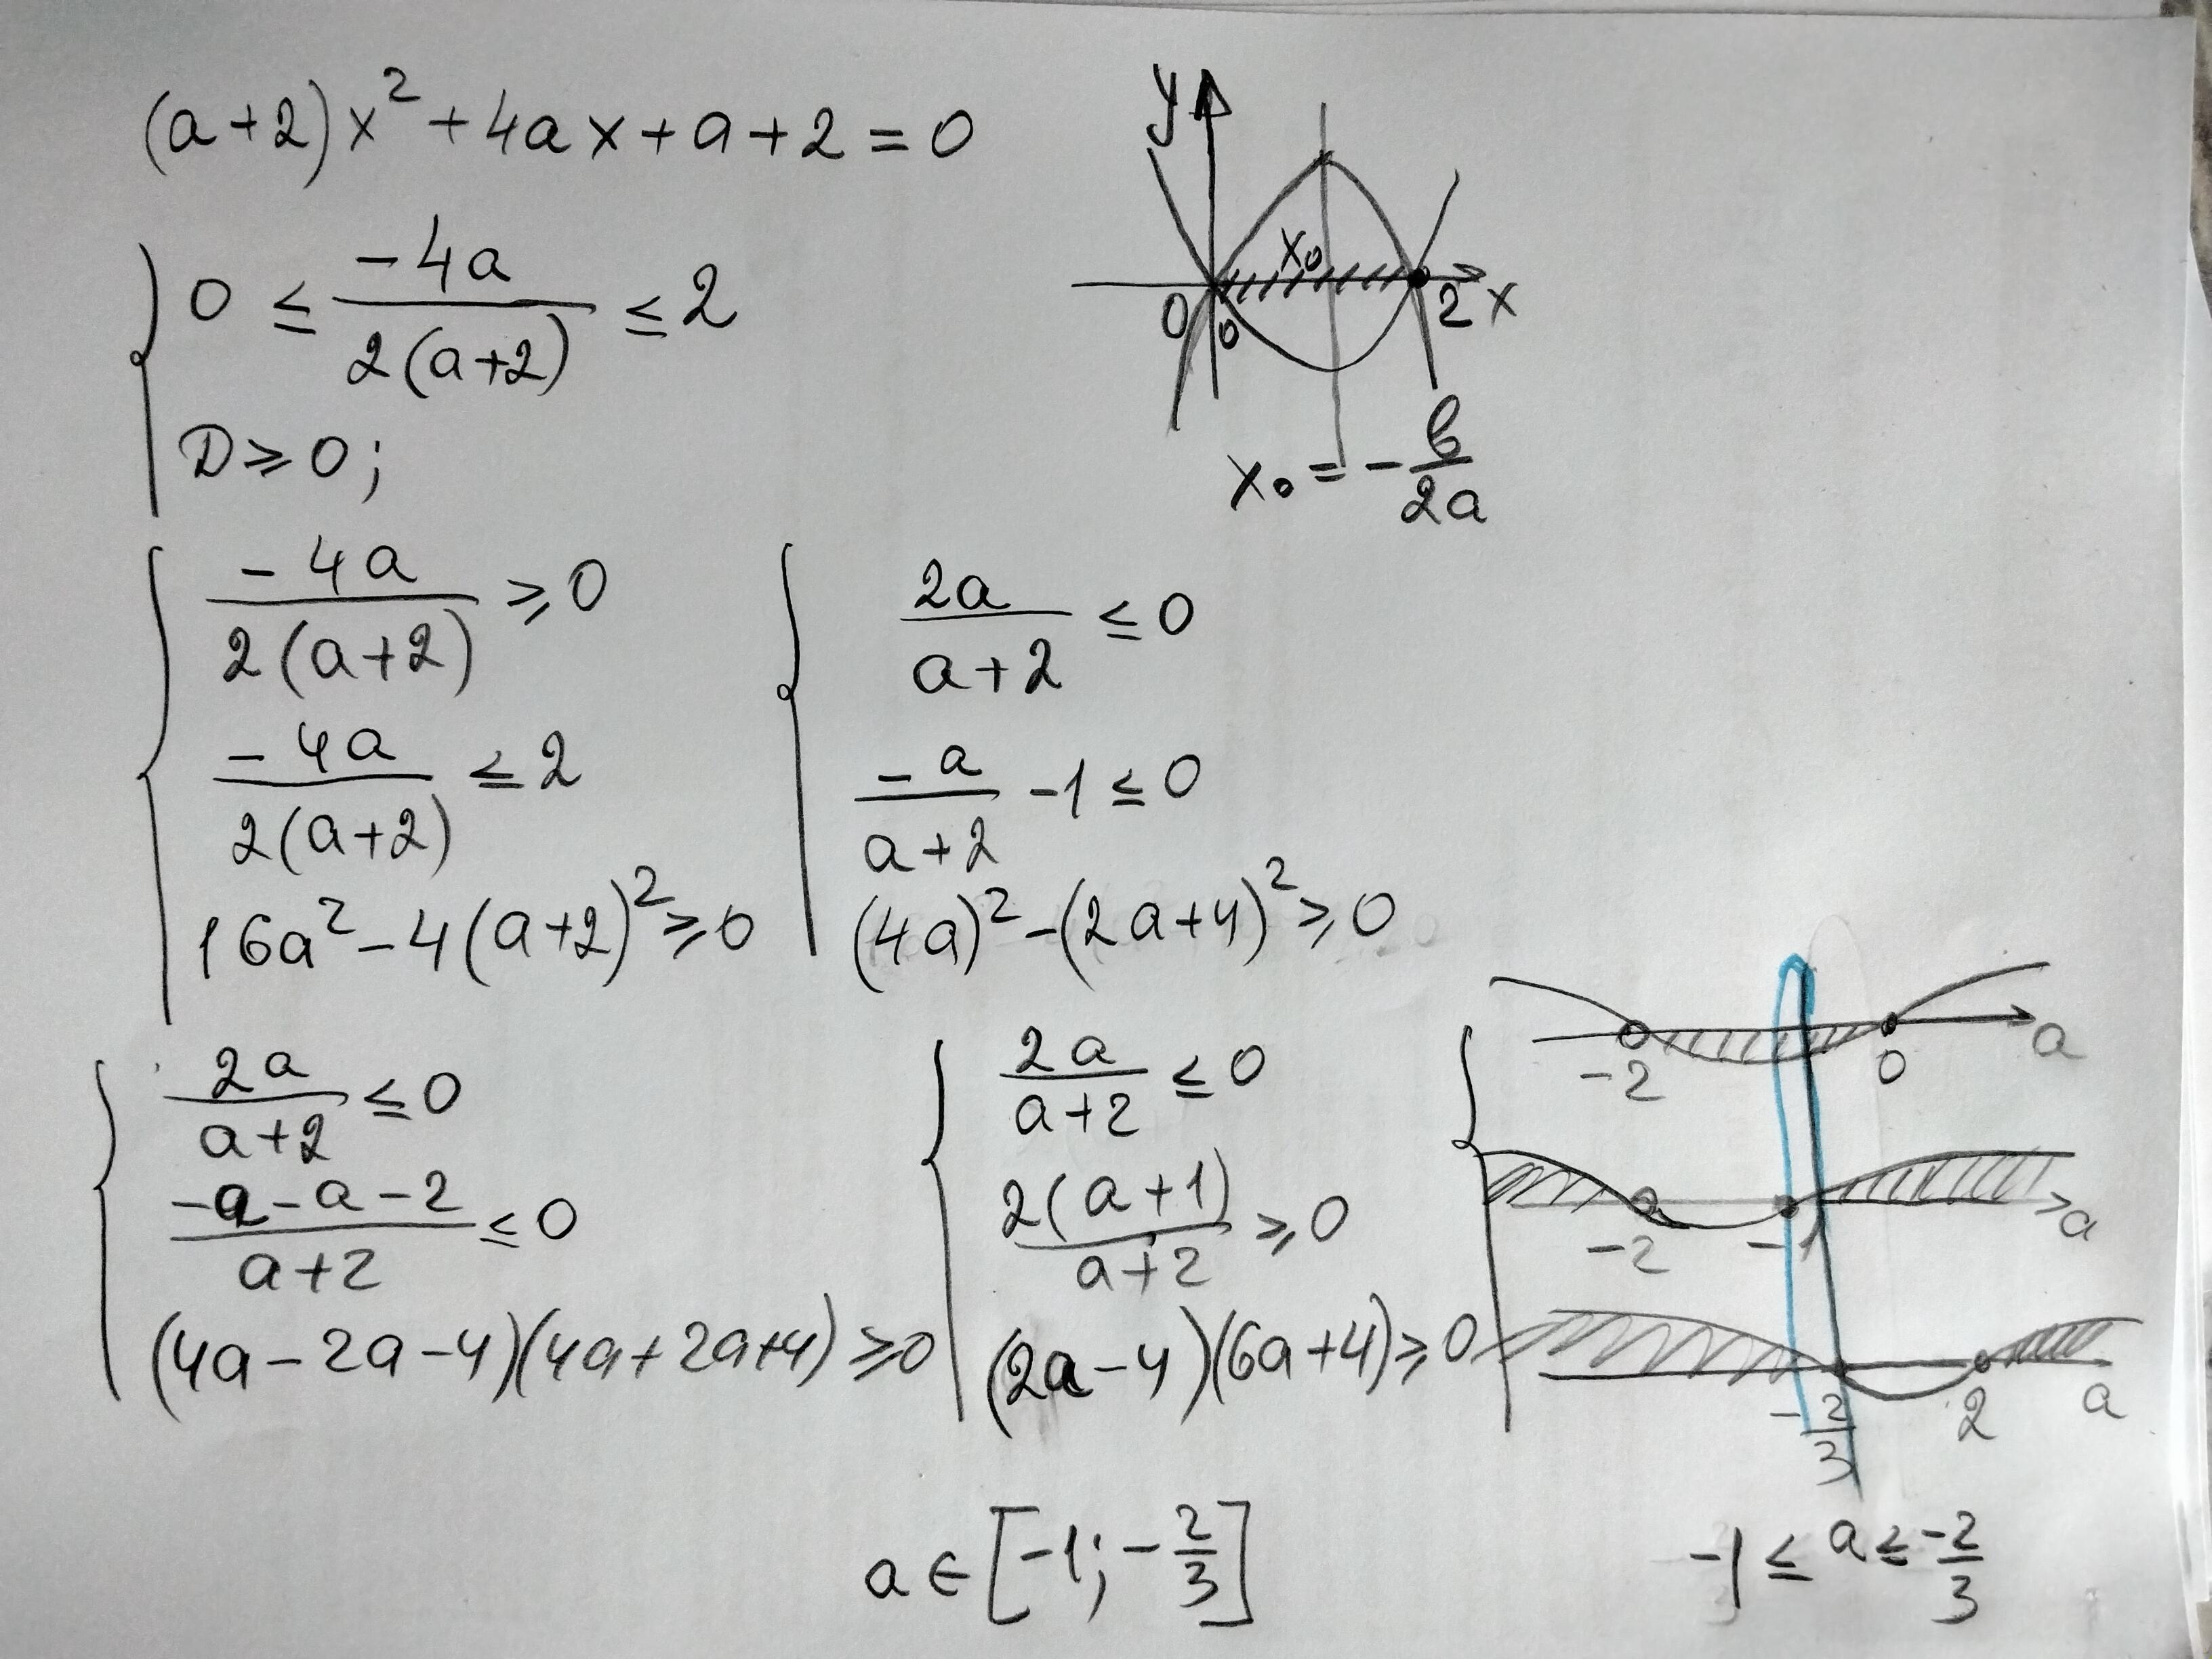 (a+2)x² + 4ax + a + 2 = 0
y
x₀
0
0
2
x
x₀ = - b/2a
0 ≤ -4a/2(a+2) ≤ 2
D ⩾ 0;
-4a/2(a+2) ⩾ 0
-4a/2(a+2) ≤ 2
16a² - 4(a+2)² ⩾ 0
2a/a+2 ≤ 0
-a/a+2 - 1 ≤ 0
(4a)² - (2a+4)² ⩾ 0
2a/a+2 ≤ 0
-a-a-2/a+2 ≤ 0
(4a-2a-4)(4a+2a+4) ⩾ 0
2a/a+2 ≤ 0
2(a+1)/a+2 ⩾ 0
(2a-4)(6a+4) ⩾ 0
-2 0 a
-2 -1 a
-2/3 2 a
a ∈ [-1; -2/3]
-1 ≤ a ≤ -2/3